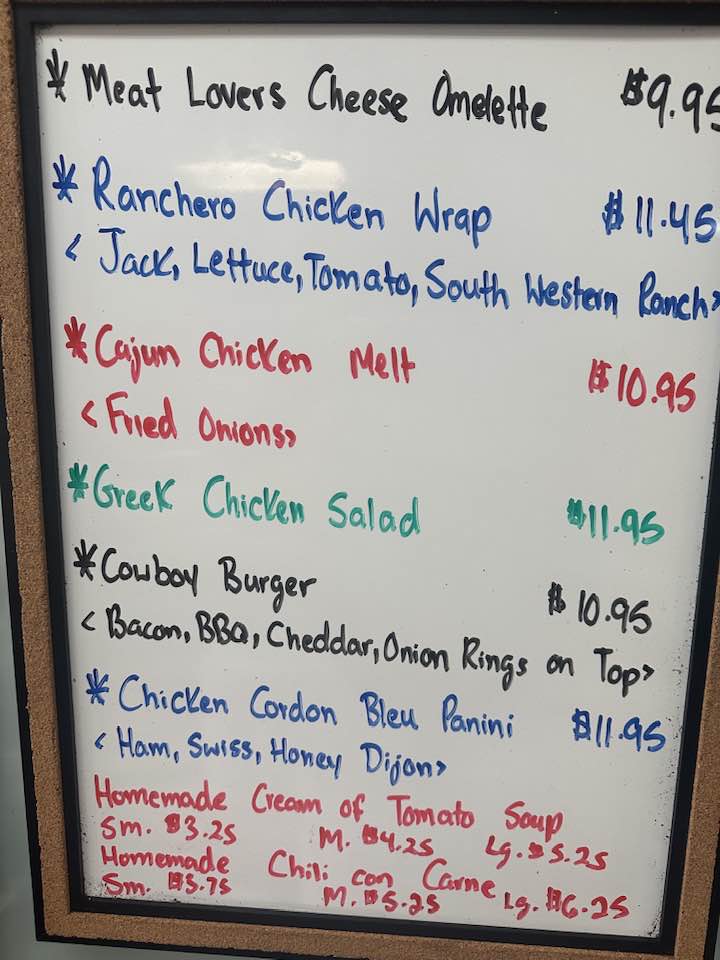 * Meat Lovers Cheese Omelette $9.95
* Ranchero Chicken Wrap $11.45
< Jack, Lettuce, Tomato, South Western Ranch>
* Cajun Chicken Melt $10.95
< Fried Onions>
* Greek Chicken Salad $11.95
* Cowboy Burger $10.95
< Bacon, BBQ, Cheddar, Onion Rings on Top>
* Chicken Cordon Bleu Panini $11.95
< Ham, Swiss, Honey Dijon>
Homemade Cream of Tomato Soup
Sm. $3.25 M. $4.25 Lg. $5.25
Homemade Chili con Carne
Sm. $3.75 M. $5.25 Lg. $6.25